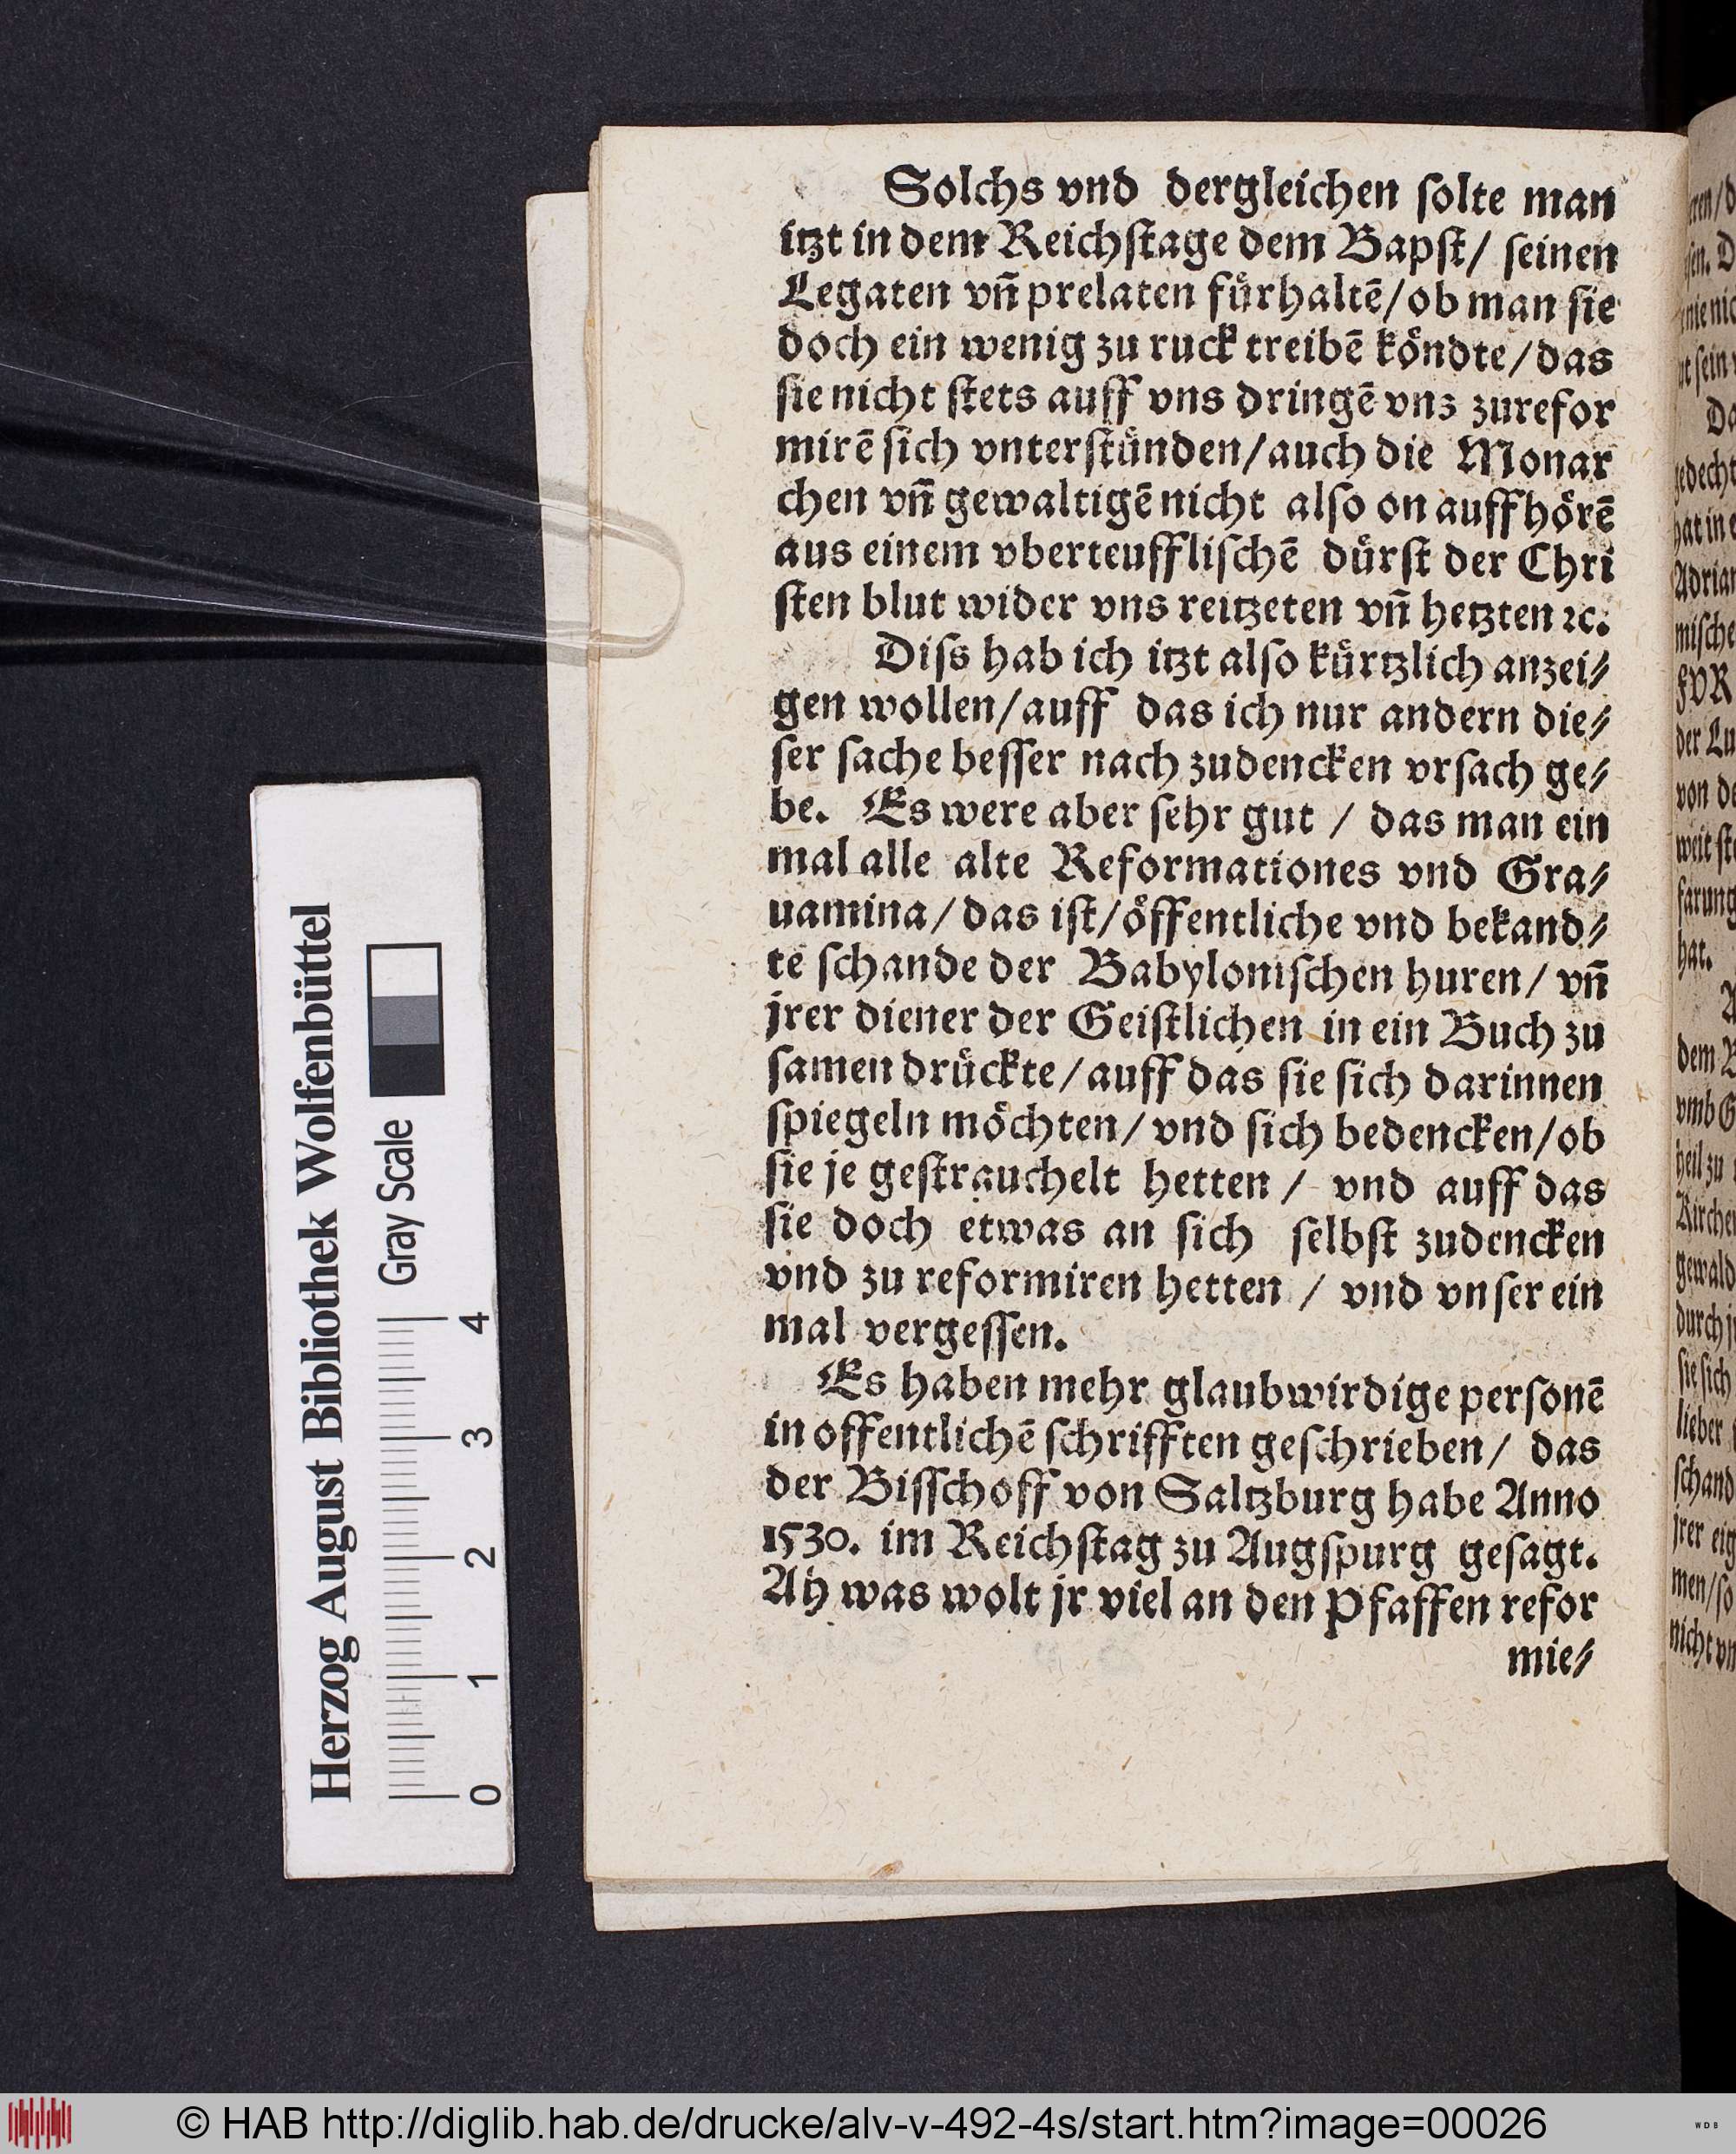 Solchs vnd dergleichen ſolte man
itzt in dem Reichſtage dem Bapſt/ ſeinen
Legaten vn̄ prelaten fuͤrhaltē/ob man ſie
doch ein wenig zu ruck treibē koͤndte/das
ſie nicht ſtets auff vns dringē vns zurefor
mirē ſich vnterſtuͤnden/auch die Monar
chen vn̄ gewaltigē nicht alſo on auffhoͤrē
aus einem vberteuffliſchē duͤrſt der Chri
ſten blut wider vns reitzeten vn̄ hetzten ꝛc.
Diſs hab ich itzt alſo kuͤrtzlich anzei⸗
gen wollen/auff das ich nur andern die⸗
ſer ſache beſſer nach zudencken vrſach ge⸗
be. Es were aber ſehr gut / das man ein
mal alle alte Reformationes vnd Gra⸗
uamina/das iſt/oͤffentliche vnd bekand⸗
te ſchande der Babyloniſchen huren/ vn̄
jrer diener der Geiſtlichen in ein Buch zu
ſamen druͤckte/auff das ſie ſich darinnen
ſpiegeln moͤchten/vnd ſich bedencken/ob
ſie je geſtrauchelt hetten / vnd auff das
ſie doch etwas an ſich ſelbſt zudencken
vnd zu reformiren hetten / vnd vnſer ein
mal vergeſſen.
Es haben mehr glaubwirdige perſonē
in offentlichē ſchrifften geſchrieben/ das
der Biſſchoff von Saltzburg habe Anno
1530. im Reichſtag zu Augſpurg geſagt.
Ah was wolt jr viel an den Pfaffen refor
mie⸗
Herzog August Bibliothek Wolfenbüttel
Gray Scale
0 1 2 3 4
gedecht
hat in
mische
FVR
der Lu
von de
hat.
dem B
vmb G
heil zu
gewald
ſie ſich
lieber
ſchand
jrer eig
men/ſo
nicht vn
© HAB http://diglib.hab.de/drucke/alv-v-492-4s/start.htm?image=00026
WDB